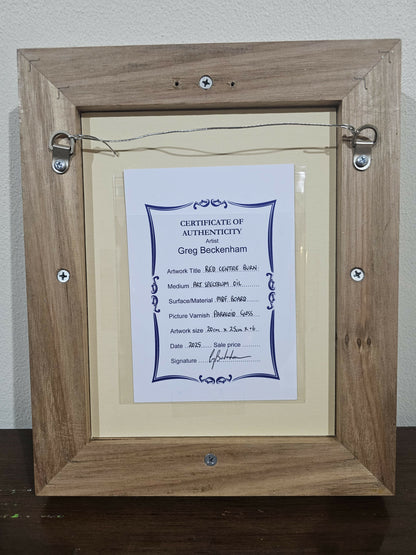 CERTIFICATE OF
AUTHENTICITY
Artist
Greg Beckenham
Artwork Title RED CENTRE BURN.
Medium ART SPECTRUM OIL
Surface/Material MDF BOARD
Picture Varnish PARALOID GLOSS
Artwork size 20cm x 25cm
Date 2025 Sale price
Signature